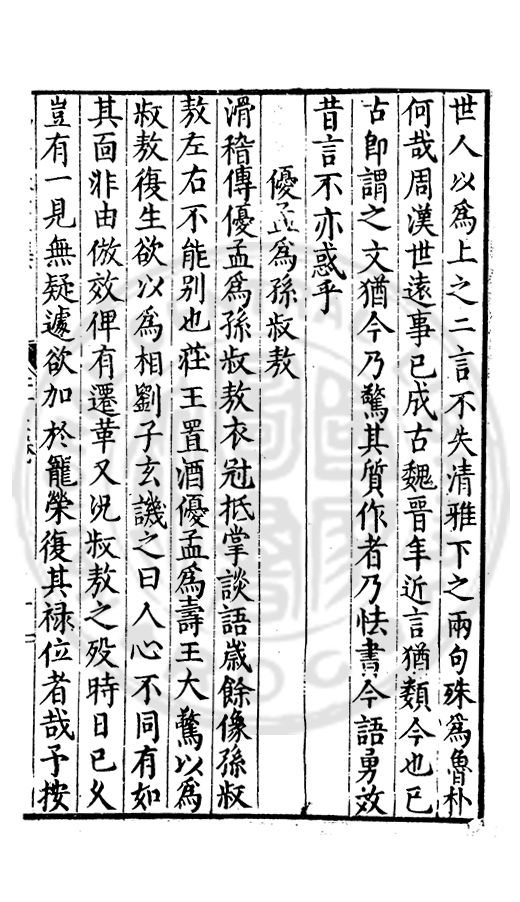 世人以爲上之二言不失清雅下之兩句殊爲魯朴
何哉周漢世遠事已成古魏晉年近言猶類今也已
古卽謂之文猶今乃驚其質作者乃怯書今語勇效
昔言不亦惑乎
優孟爲孫叔敖
滑稽傳優孟爲孫叔敖衣冠抵掌談語歲餘像孫叔
敖左右不能别也莊王置酒優孟爲壽王大驚以爲
叔敖復生欲以爲相劉子玄譏之曰人心不同有如
其面非由倣效俾有遷革又况叔敖之殁時日已久
豈有一見無疑遽欲加於寵榮復其禄位者哉予按